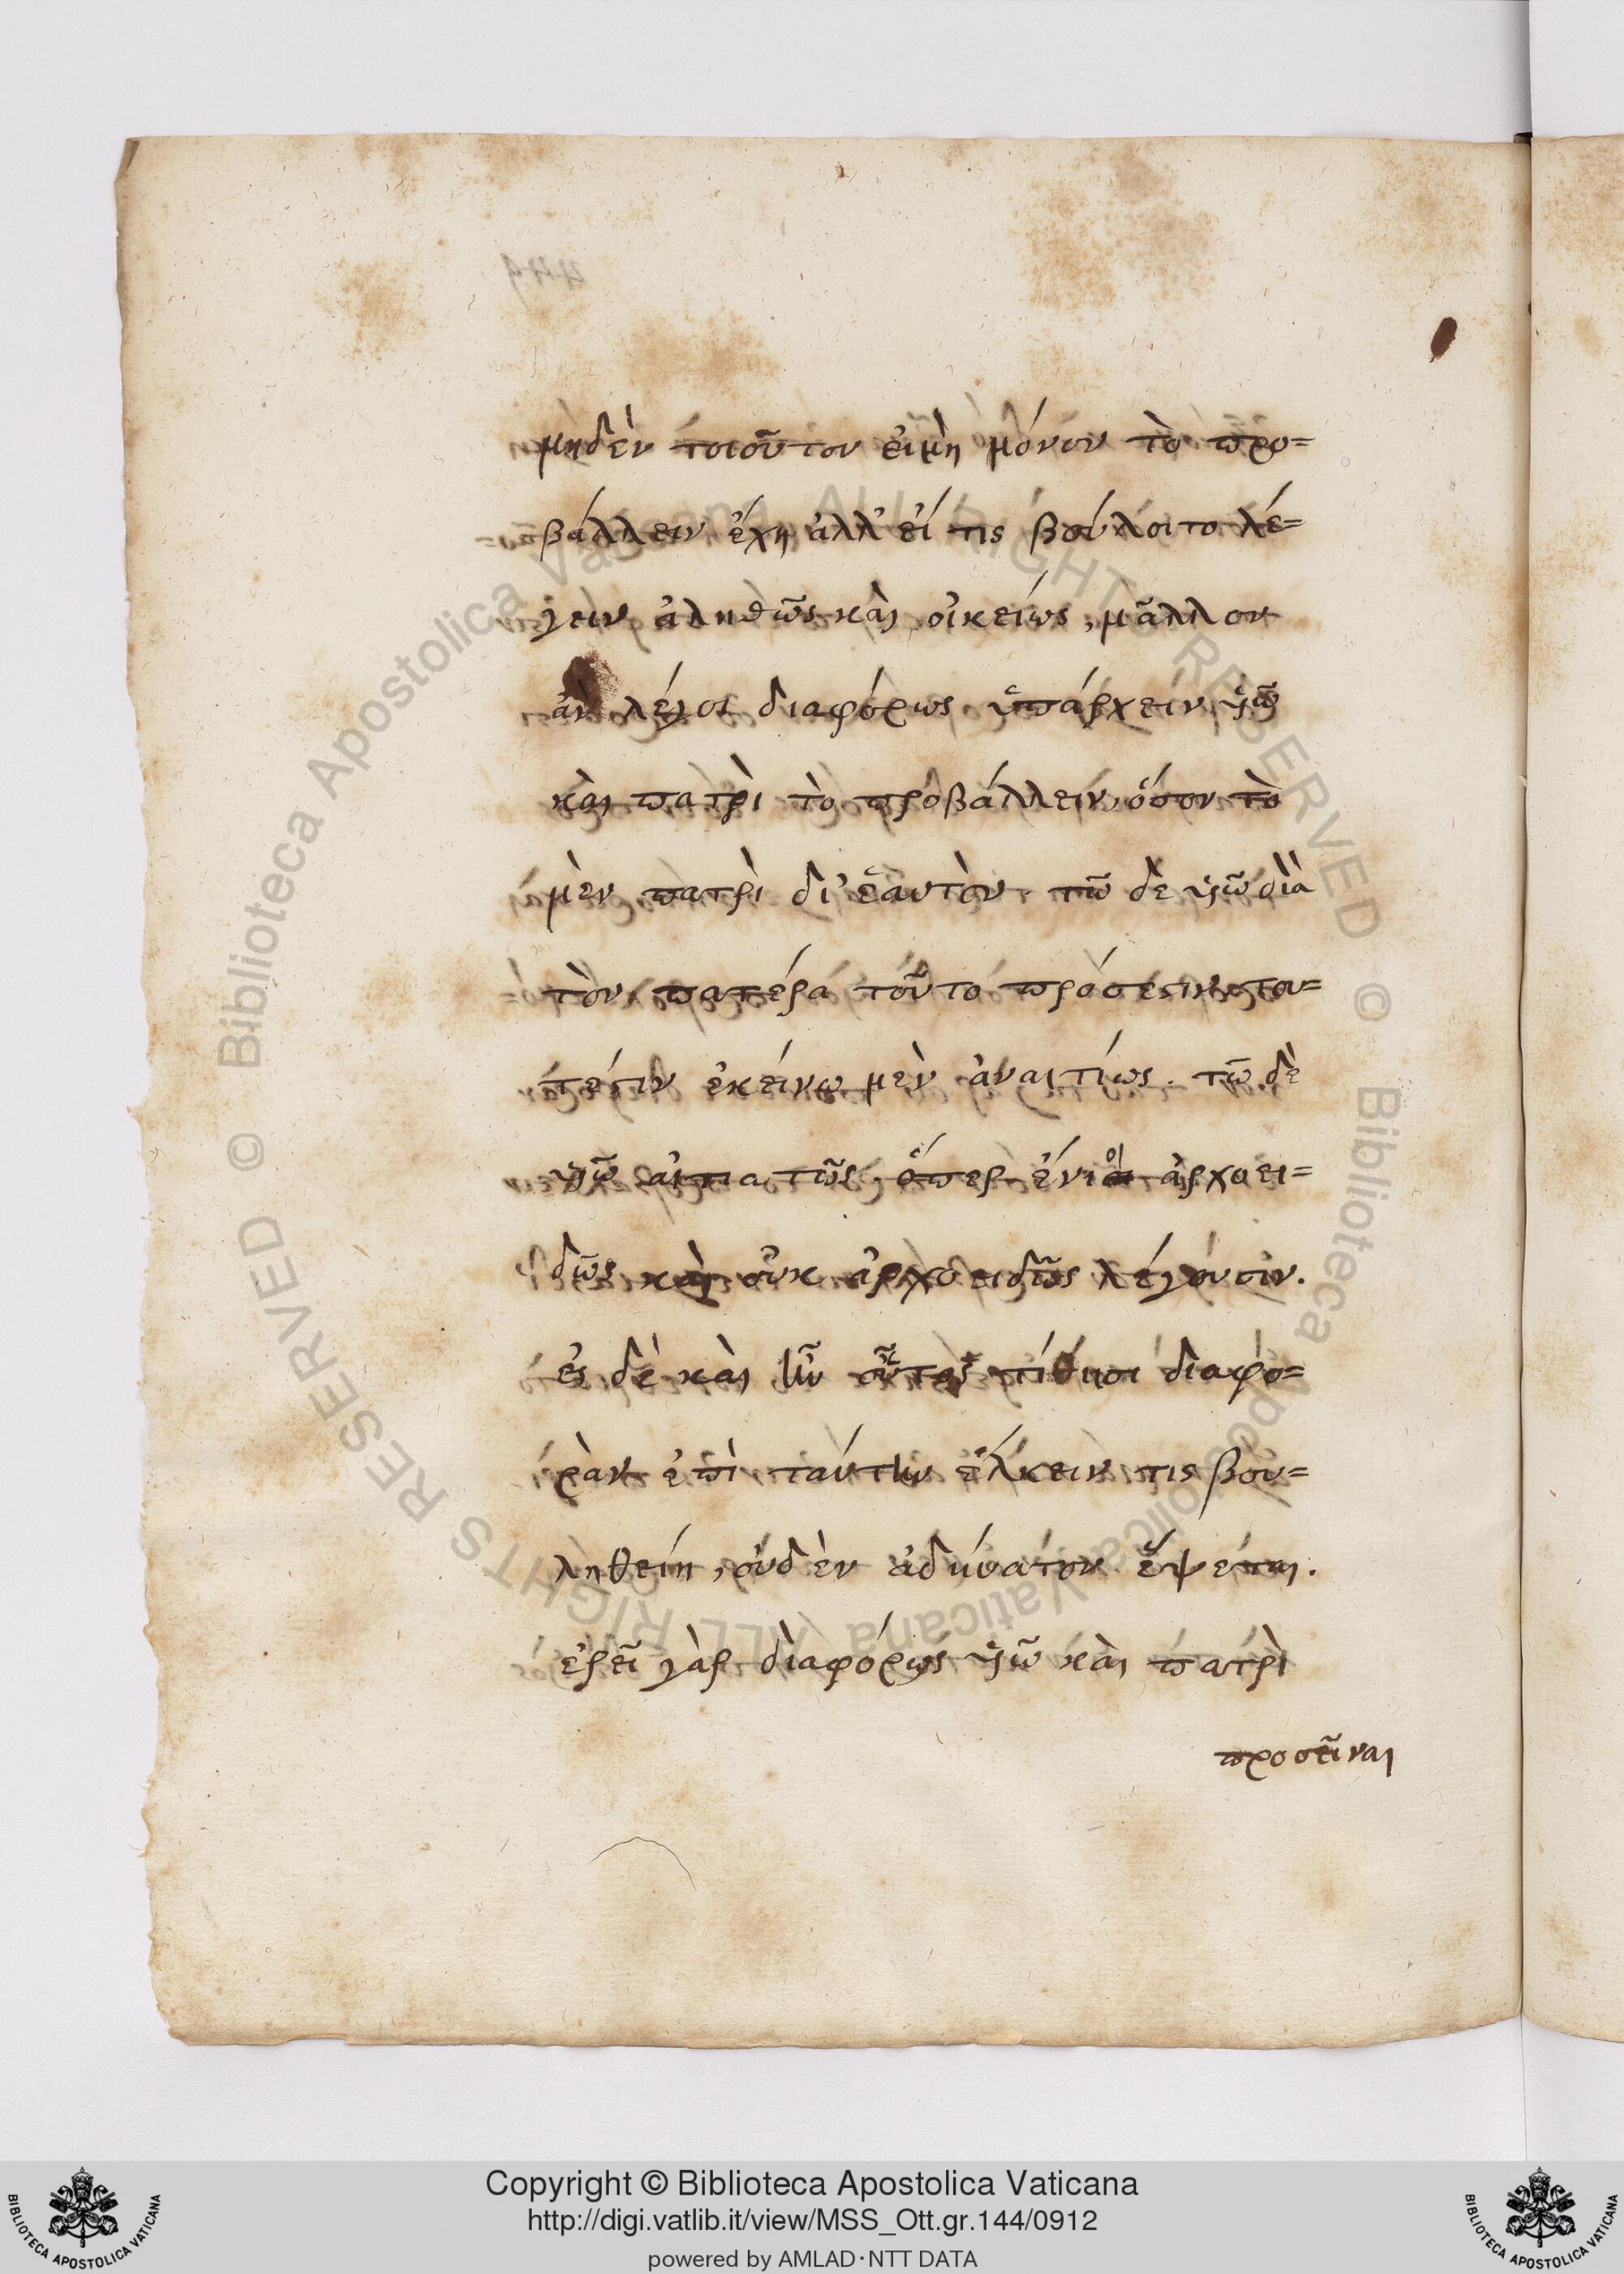 μηδὲν τοιοῦτον εἰμὴ μόνον τὸ προ=
βάλλειν ἔχη ἀλλ' εἴ τις βούλοιτο λέ=
γειν ἀληθῶς καὶ οἰκείως, μᾶλλον
ἂν λέγοι διαφόρως ὑπάρχειν υἱῶ
καὶ πατρὶ τὸ προβάλλειν, ὅσον τὸ
μὲν πατρὶ δι' ἑαυτὸν. τῶ δὲ υἱῶ διὰ
τὸν πατέρα τοῦτο πρόσεστιν, του=
τέστιν ἐκείνω μὲν ἀναιτίως. τῶ δὲ
υἱῶ αἰτιατῶς, ὅπερ ἔνιοι ἀρχοει=
δῶς καὶ οὐκ ἀρχοειδῶς λέγουσιν.
εἰ δὲ καὶ ἣν οὗτος τίθησι διαφο=
ρὰν ἐπὶ ταύτην ἕλκειν τις βου=
ληθείη, οὐδὲν ἀδύνατον ἕψεται.
ἐρεῖ γὰρ διαφόρως υἱῶ καὶ πατρὶ
προσεῖναι
Copyright © Biblioteca Apostolica Vaticana
http://digi.vatlib.it/view/MSS_Ott.gr.144/0912
powered by AMLAD·NTT DATA
BIBLIOTECA APOSTOLICA VATICANA
BIBLIOTECA APOSTOLICA VATICANA
© Biblioteca Apostolica Vaticana ALL RIGHTS RESERVED © Biblioteca Apostolica Vaticana ALL RIGHTS RESERVED